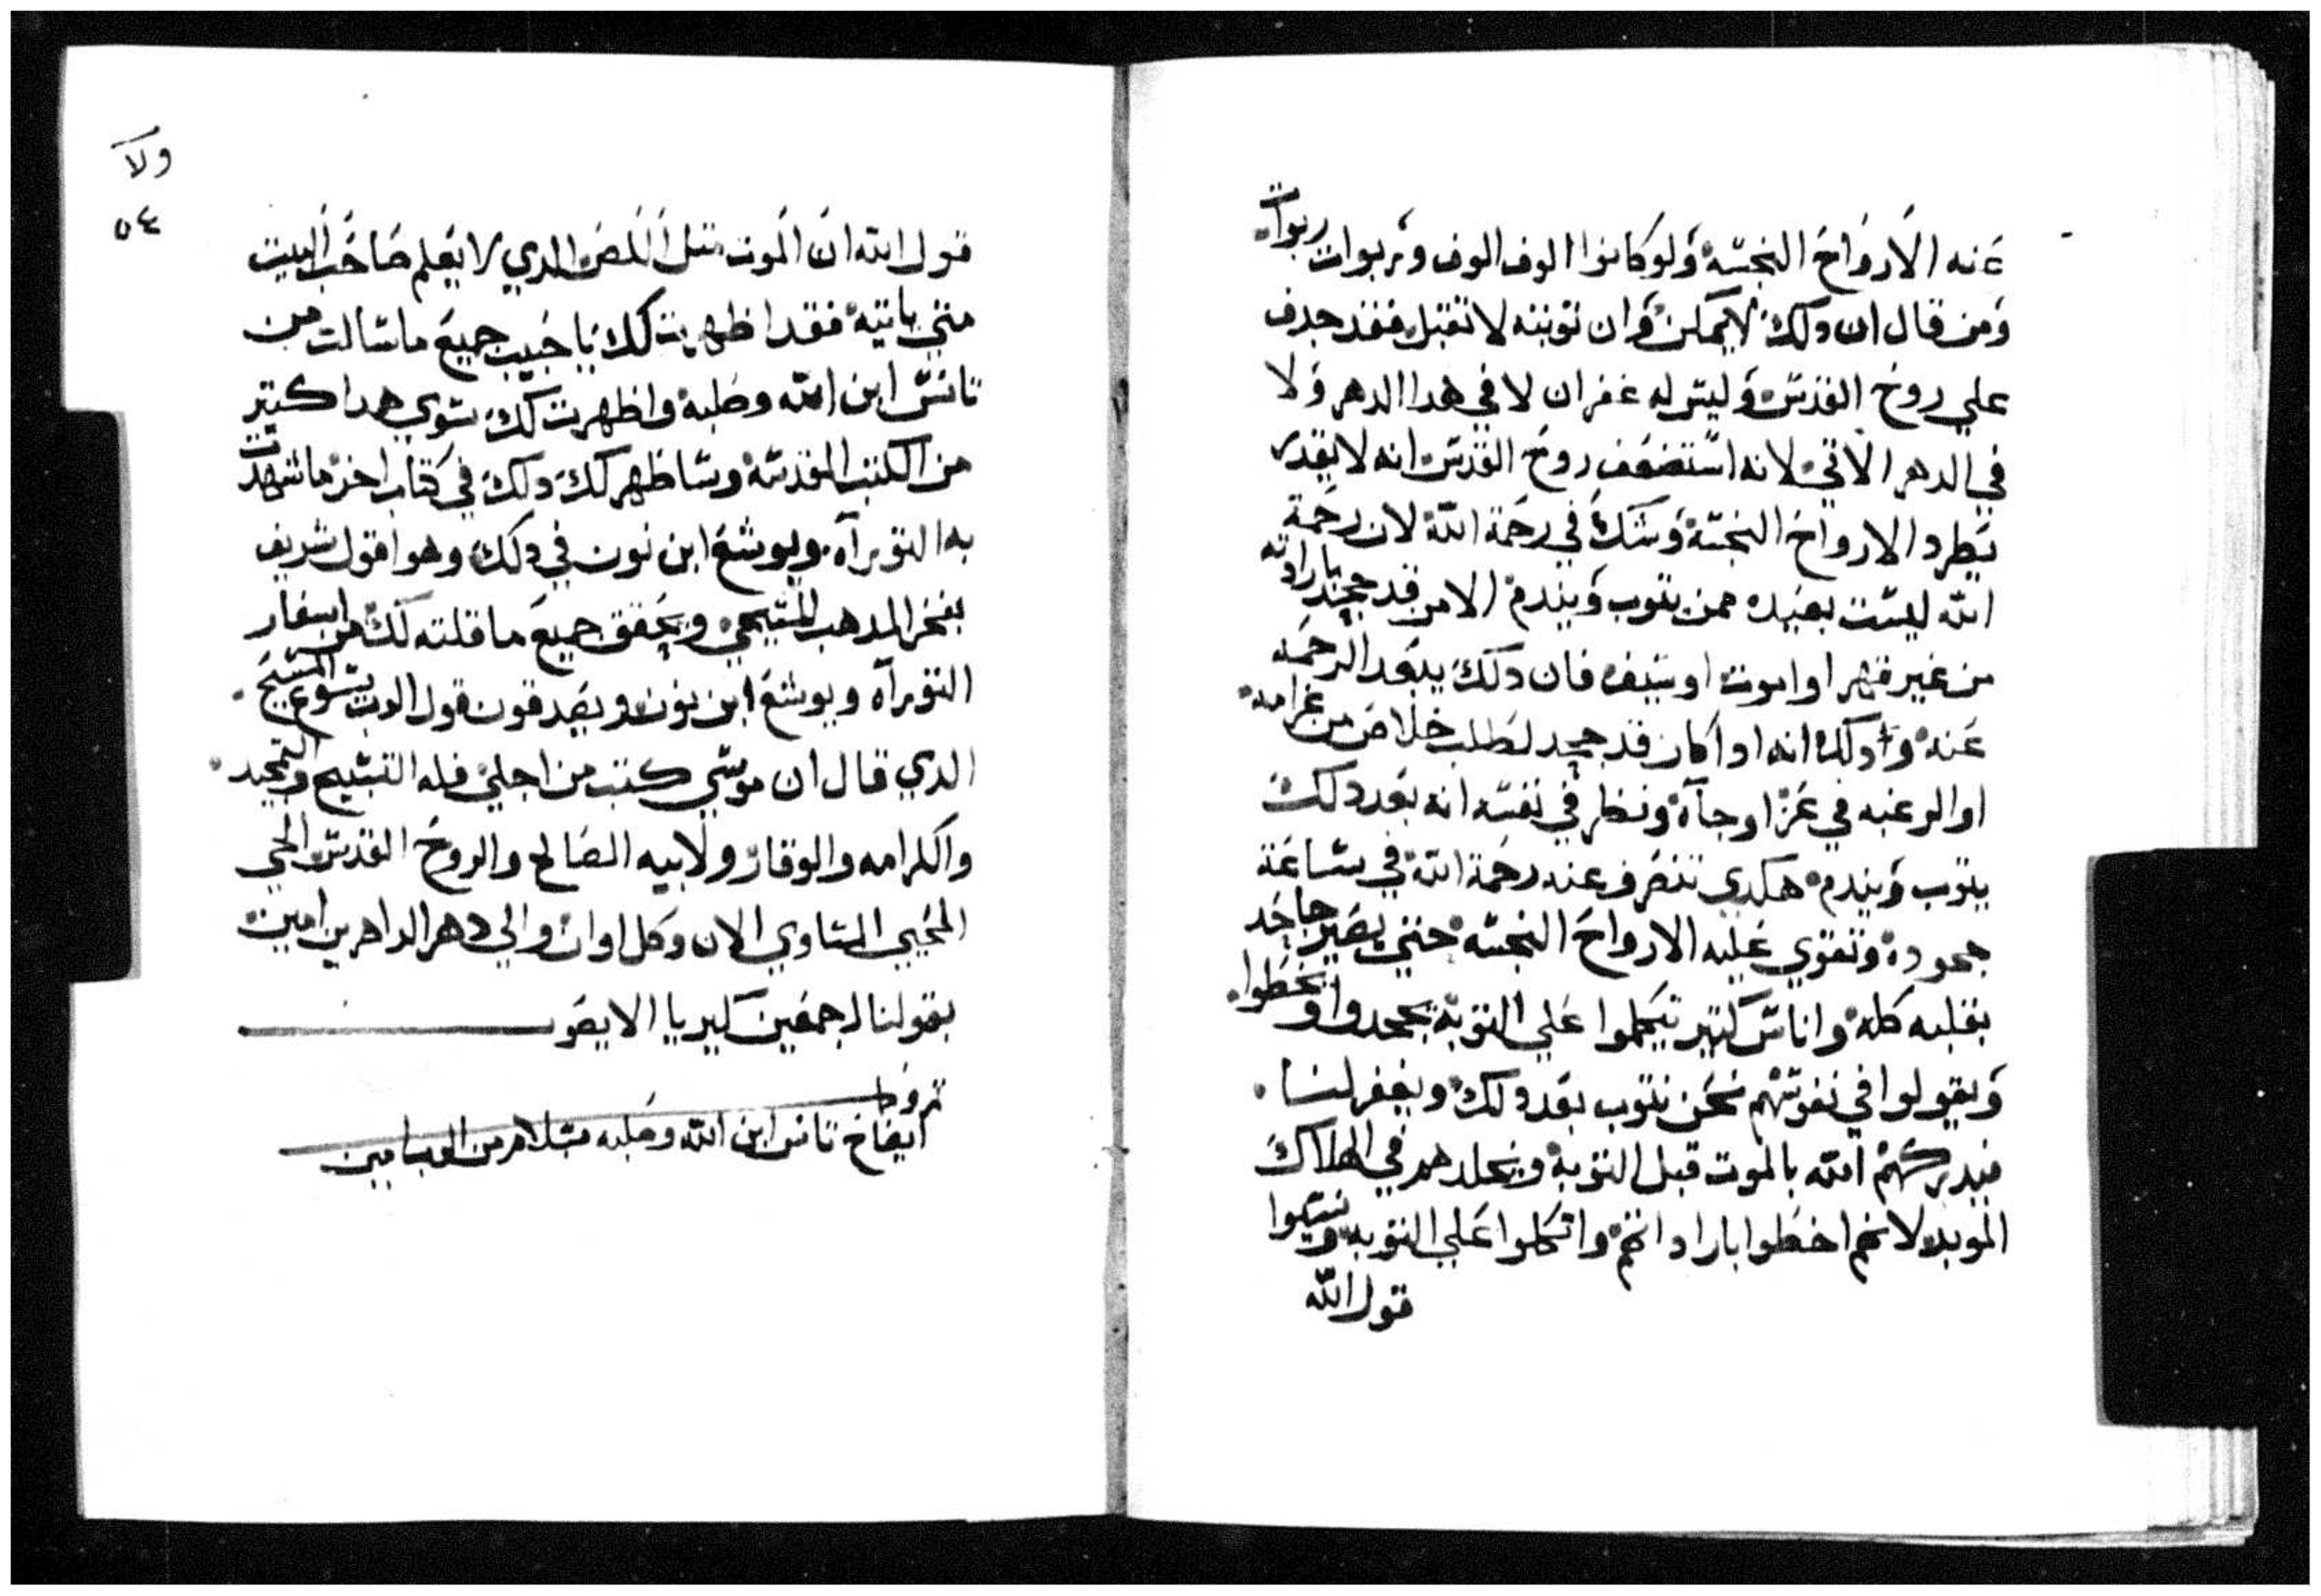 عنه الارواح النجسه ولو كانوا الوف الوف وربوات ربوات
ومن قال ان دلك لا يمكن وان توبته لا تقبل فقد جدف
علي روح القدس وليس له غفران لا في هدا الدهر ولا
في الدهر الاتي لانه استضعف روح القدس انه لا يقدر
يطرد الارواح النجسة وشك في رحمة الله لان رحمة
الله ليست بعيده ممن يتوب ويندم الا من قد جحد بارادته
من غير قهر او لموت او سيف فان دلك يبعد الرحمه
عنه وادلك انه ادا كان قد جحد لطلب خلاص من غرامه
او الرغبه في عز او جآه ونظر في نفسه انه بعد دلك
يتوب ويندم هكدي تنصرف عنه رحمة الله في ساعة
جحوده وتقوي عليه الارواح النجسه حتي يصير جاحد
بقلبه كله واناس كتير يتكلوا علي التوبة يجحدوا او يخطوا
ويقولوا في نفوسهم نحن نتوب بعد دلك ويغفر لنا
فيدركهم الله بالموت قبل التوبة ويخلدهم في الهلاك
الموبد لانهم اخطوا بارادتهم واتكلوا علي التوبه ونسيوا
قول الله
ولا
٥٤
قول الله ان الموت متل اللص الدي لا يعلم صاحب البيت
متي ياتيه فقد اظهرت لك يا حبيب جميع ما سالت من
تانس ابن الله وصلبه واظهرت لك سوي هدا كتير
من الكتب المقدسه وساظهر لك دلك في كتاب اخر ما شهدت
به التورآه ويوشع ابن نون في دلك وهوا قول شريف
بفخر المدهب المسيحي ويحقق جميع ما قلته لك من اسفار
التورآه ويوشع ابن نون ويصدقون قول الرب يسوع المسيح
الدي قال ان موسي كتب من اجلي فله التسبيح والتمجيد
والكرامه والوقار ولابيه الصالح والروح القدس الحي
المحيي المساوي الان وكل اوان والي دهر الداهرين امين
بقولنا اجمعين كيرياليصون
ايضاح تانس ابن الله وصلبه بسلام من الرب امين